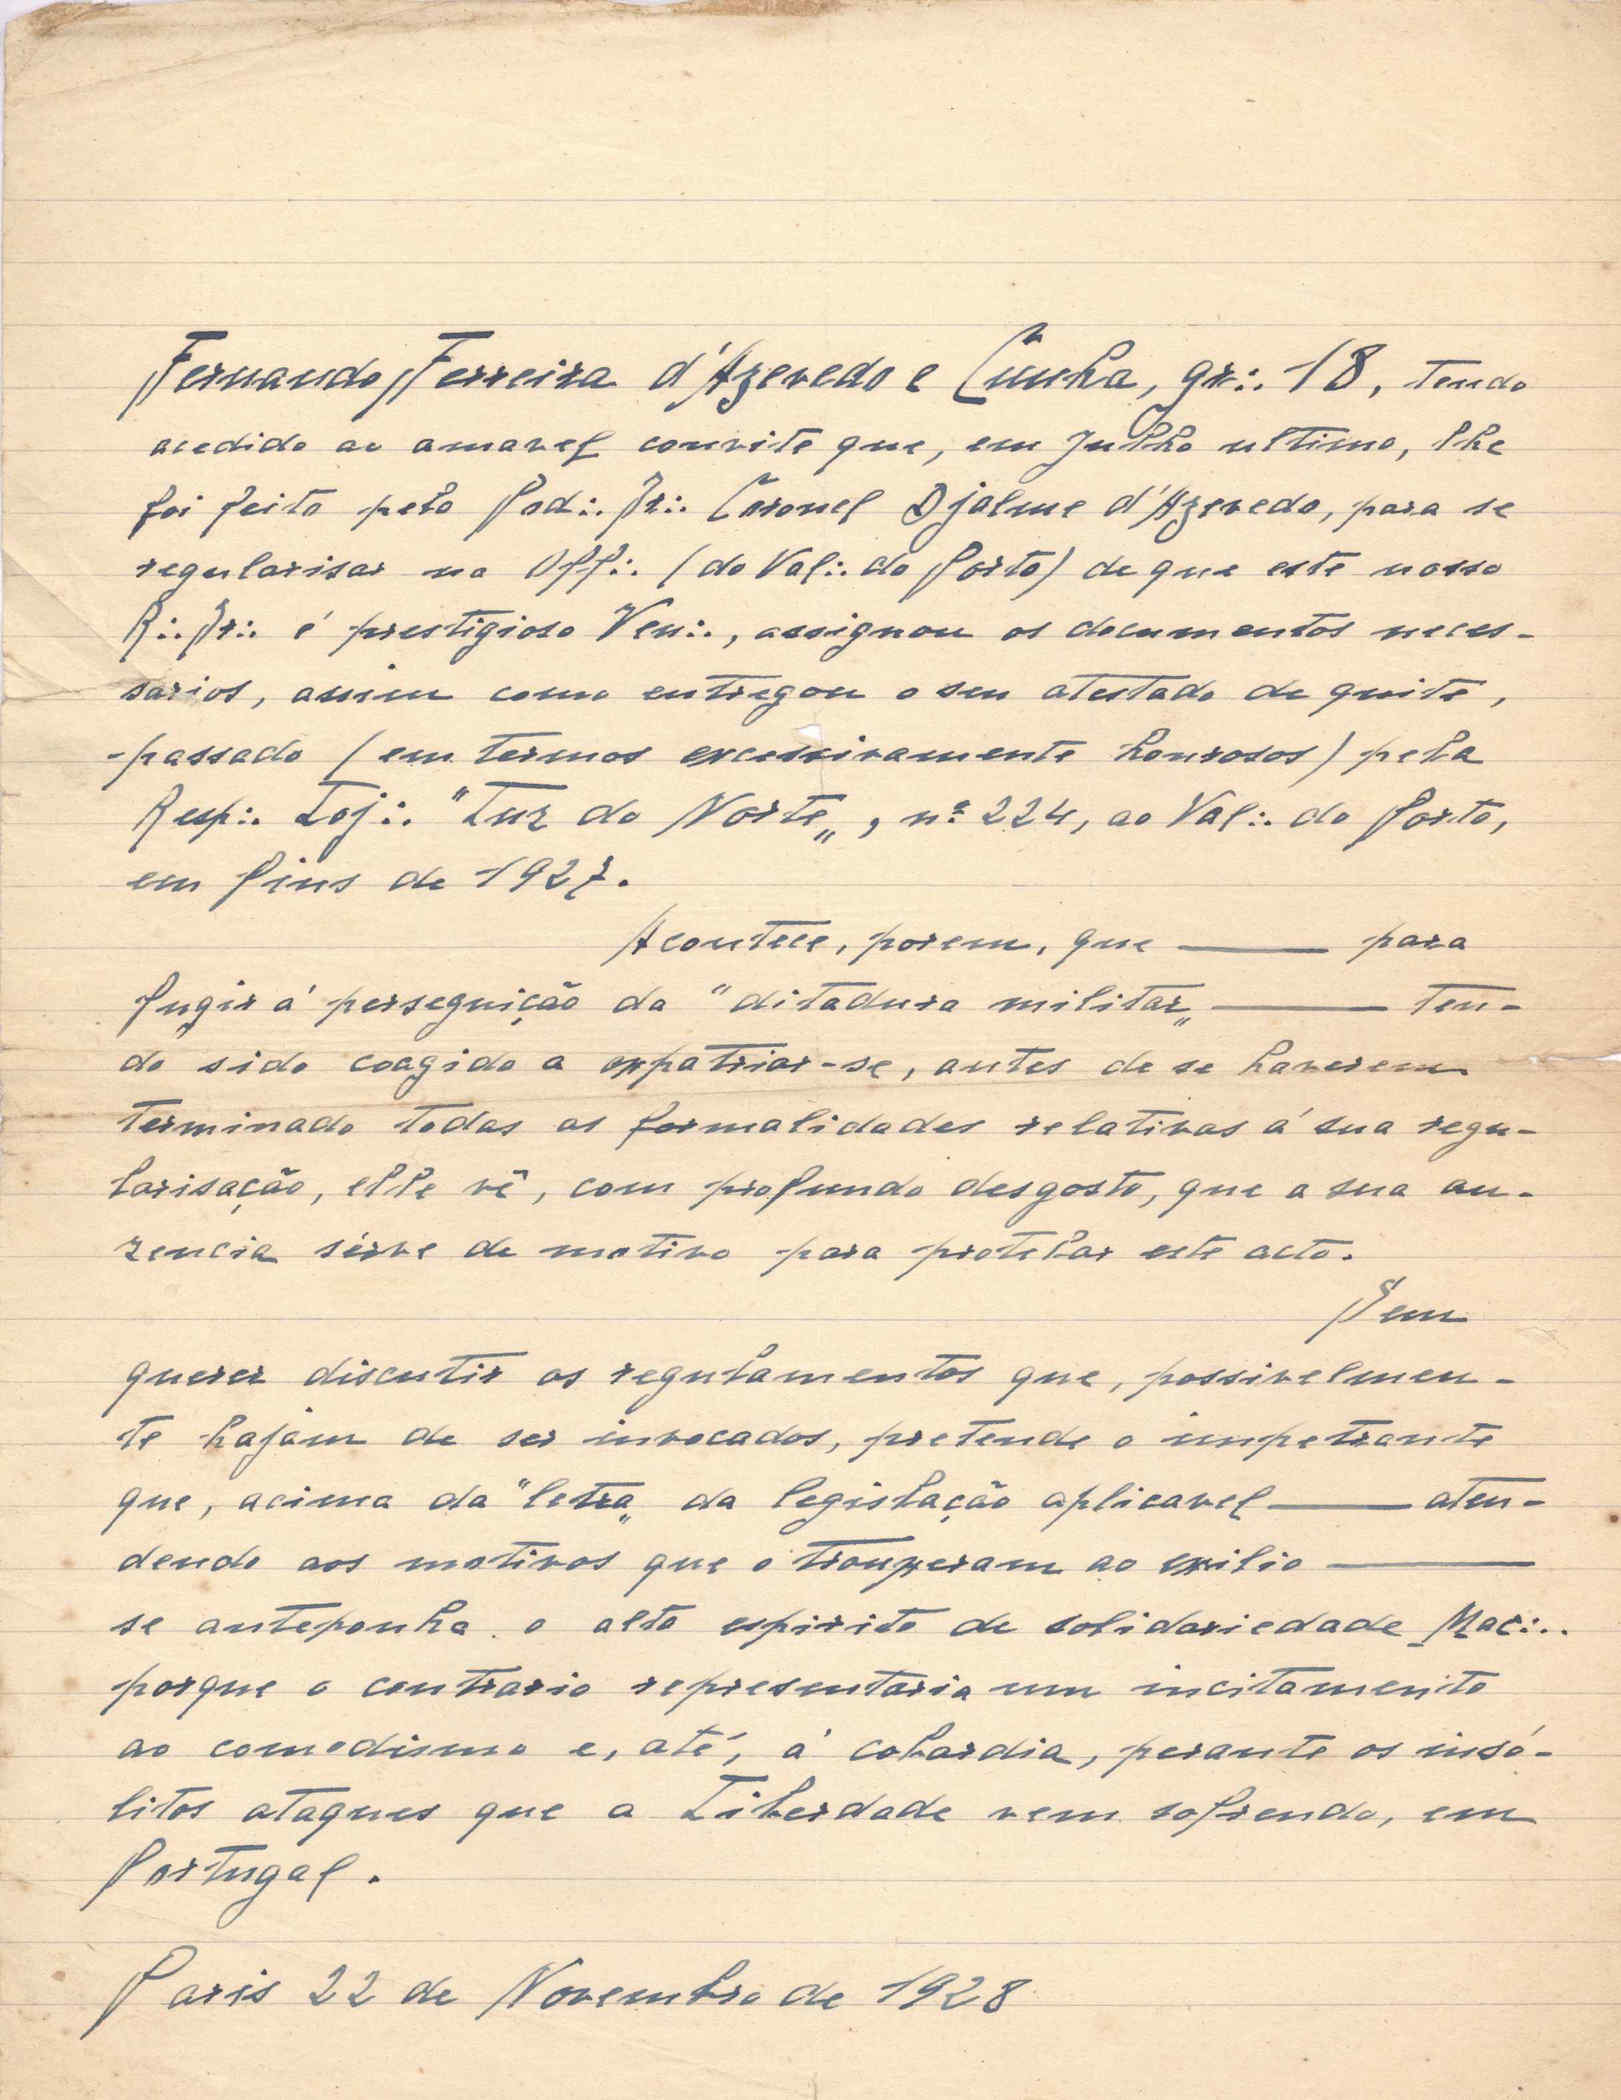 Fernando Ferreira d'Azevedo e Cunha, gr∴ 18, tendo
acedido ao amavel convite que, em Julho ultimo, lhe
foi feito pelo Pod∴ Ir∴ Coronel Djalme d'Azevedo, para se
regularisar na Off∴ (do Val∴ do Porto) de que este nosso
R∴ Ir∴ é prestigioso Ven∴, assignou os documentos neces-
sarios, assim como entregou o seu atestado de quite,
-passado (em termos excessivamente honrosos) pela
Resp∴ Loj∴ "Luz do Norte„, nº 224, ao Val∴ do Porto,
em fins de 1927.
Acontece, porem, que —— para
fugir á perseguição da "ditadura militar„ —— ten-
do sido coagido a expatriar-se, antes de se haverem
terminado todas as formalidades relativas á sua regu-
larisação, elle vê, com profundo desgosto, que a sua au-
zencia sérve de motivo para protelar este acto.
Sem
querer discutir os regulamentos que, possivelmen-
te hajam de ser invocados, pretende o impetrante
que, acima da "letra„ da legislação aplicavel —— aten-
dendo aos motivos que o trouxeram ao exilio ——
se anteponha o alto espirito de solidariedade Maç∴.
porque o contrario representaria um incitamento
ao comodismo e, até, á cobardia, perante os insó-
litos ataques que a Liberdade vem sofrendo, em
Portugal.
Paris 22 de Novembro de 1928